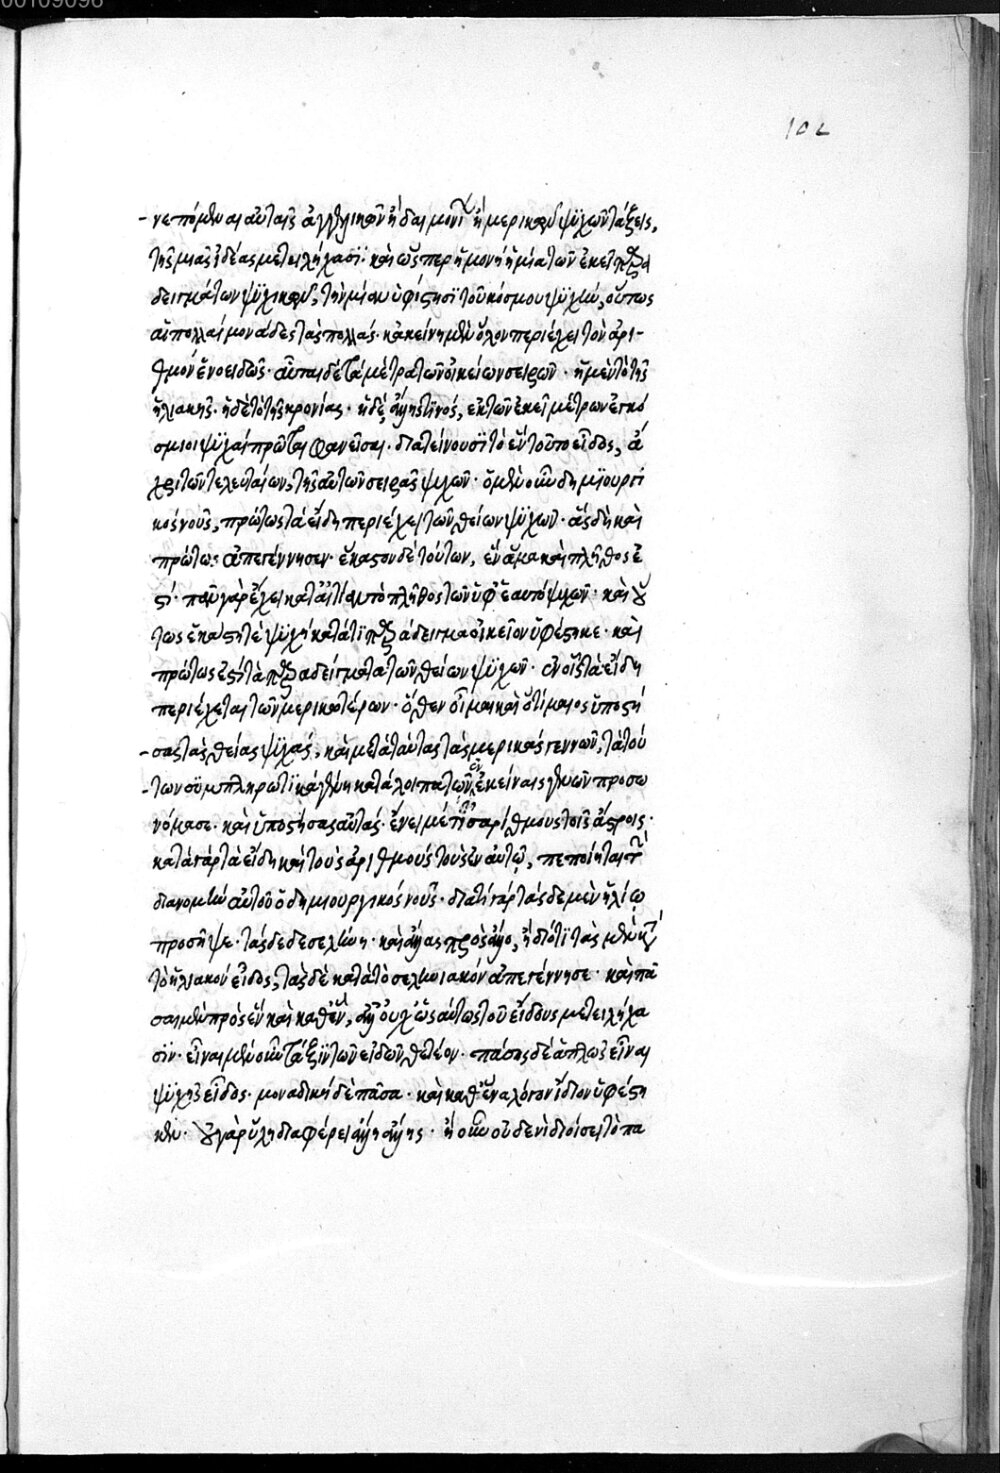 00109098
102
νεπόμεναι αὐταῖς ἀγγελικῶν ἢ δαιμονί ἢ μερικῶν ψυχῶν τάξεις,
τῆς μιᾶς ἰδέας μετειλήχασι· καὶ ὥσπερ ἡ μονὴ ἡ μία τῶν ἐκεῖ παρα
δειγμάτων ψυχικῶν, τὴν μίαν ὑφίστησι τοῦ κόσμου ψυχήν, οὕτως
αἱ πολλαὶ μονάδες τὰς πολλάς· κἀκείνη μὲν ὅλον περιέχει τὸν ἀρι-
θμὸν ἑνοειδῶς· αὗται δὲ τὰ μέτρα τῶν οἰκείων σειρῶν· ἡ μὲν τὸ τῆς
ἡλιακῆς· ἡ δὲ τὸ τῆς κρονίας· ἡ δὲ ἄλλης τινός, ἐκ τῶν ἐκεῖ μέτρων ἐγκό
σμιοι ψυχαὶ πρῶται φανεῖσαι· διατείνουσι τὸ ἓν τοῦτο εἶδος, ἄ
χρι τῶν τελευταίων, τῆς αὐτῶν σειρᾶς ψυχῶν· ὁ μὲν οὖν δημιουργι
κὸς νοῦς, πρώτως τὰ εἴδη περιέχει τῶν θείων ψυχῶν· ἃς δὴ καὶ
πρώτως ἀπεγέννησεν· ἕκαστον δὲ τούτων, ἓν ἅμα καὶ πλῆθος ἐ
στί· πᾶν γὰρ ἔχει κατ' αἰτίαν τὸ πλῆθος τῶν ὑφ' ἑαυτὸ ψυχῶν· καὶ οὕ
τως ἑκάστη τὲ ψυχὴ κατά τι παράδειγμα οἰκεῖον ὑφέστηκε· καὶ
πρώτως ἐστὶ τὰ παραδείγματα τῶν θείων ψυχῶν· ἐν οἷς τὰ εἴδη
περιέχεται τῶν μερικωτέρων· ὅθεν οἶμαι καὶ ὁ τίμαιος ὑποστή
-σας τὰς θείας ψυχάς, καὶ μετὰ ταύτας τὰς μερικὰς γεννῶν, τὰ τού
-των συμπληρωτικὰ γένη κατάλοιπα τῶν ἐν ἐκείναις γενῶν προσω
νόμασε· καὶ ὑποστήσας αὐτάς· ἔνειμέ τε ἰσαρίθμους τοῖς ἄστροις·
κατὰ γὰρ τὰ εἴδη καὶ τοὺς ἀριθμοὺς τοὺς ἐν αὐτῷ, πεποίηται τὴν
διανομὴν αὐτοῦ ὁ δημιουργικὸς νοῦς· διατί γὰρ τάσδε μὲν ἡλίῳ
προσῆψε· τάσδε δὲ σελήνῃ· καὶ ἄλλας πρὸς ἄλλο, ἢ διότι τὰς μὲν κατὰ
τὸ ἡλιακὸν εἶδος, τὰς δὲ κατὰ τὸ σεληνιακὸν ἀπεγέννησε· καὶ πᾶ
σαι μὲν πρὸς ἓν καὶ καθ' ἓν, ἀλλ' οὐχ ὡσαύτως τοῦ εἴδους μετειλήχα
σιν· εἶναι μὲν οὖν τάξιν τῶν εἰδῶν θετέον· πάσης δὲ ἁπλῶς εἶναι
ψυχῆς εἶδος· μοναδικὴ δὲ πᾶσα· καὶ καθ' ἕνα λόγον ἴδιον ὑφέστη
κεν· οὐ γὰρ ὕλῃ διαφέρει ἄλλη ἄλλης· ἢ οὖν οὐδενὶ διοίσει τὸ πα